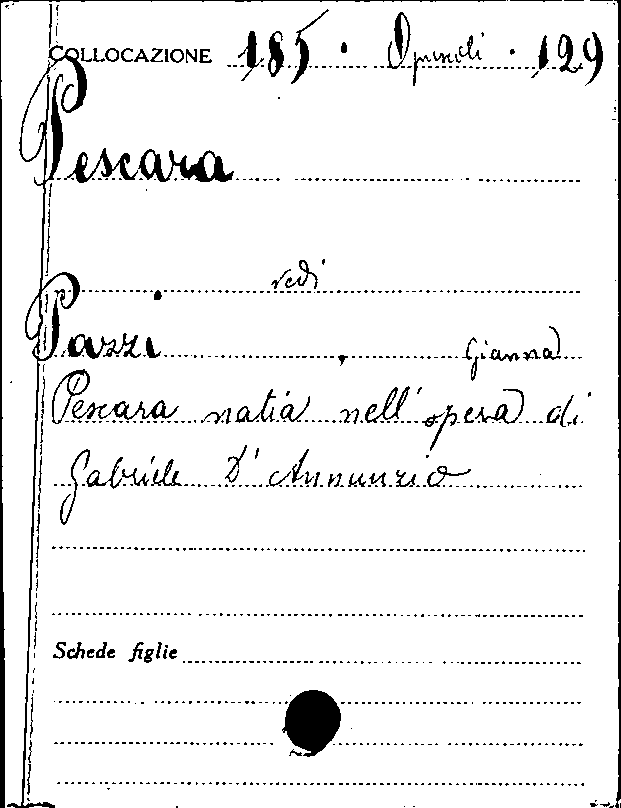 COLLOCAZIONE 185 · Opuscoli · 129
Pescara
vedi
Pazzi, Gianna
Pescara natia nell'opera di
Gabriele D'Annunzio
Schede figlie